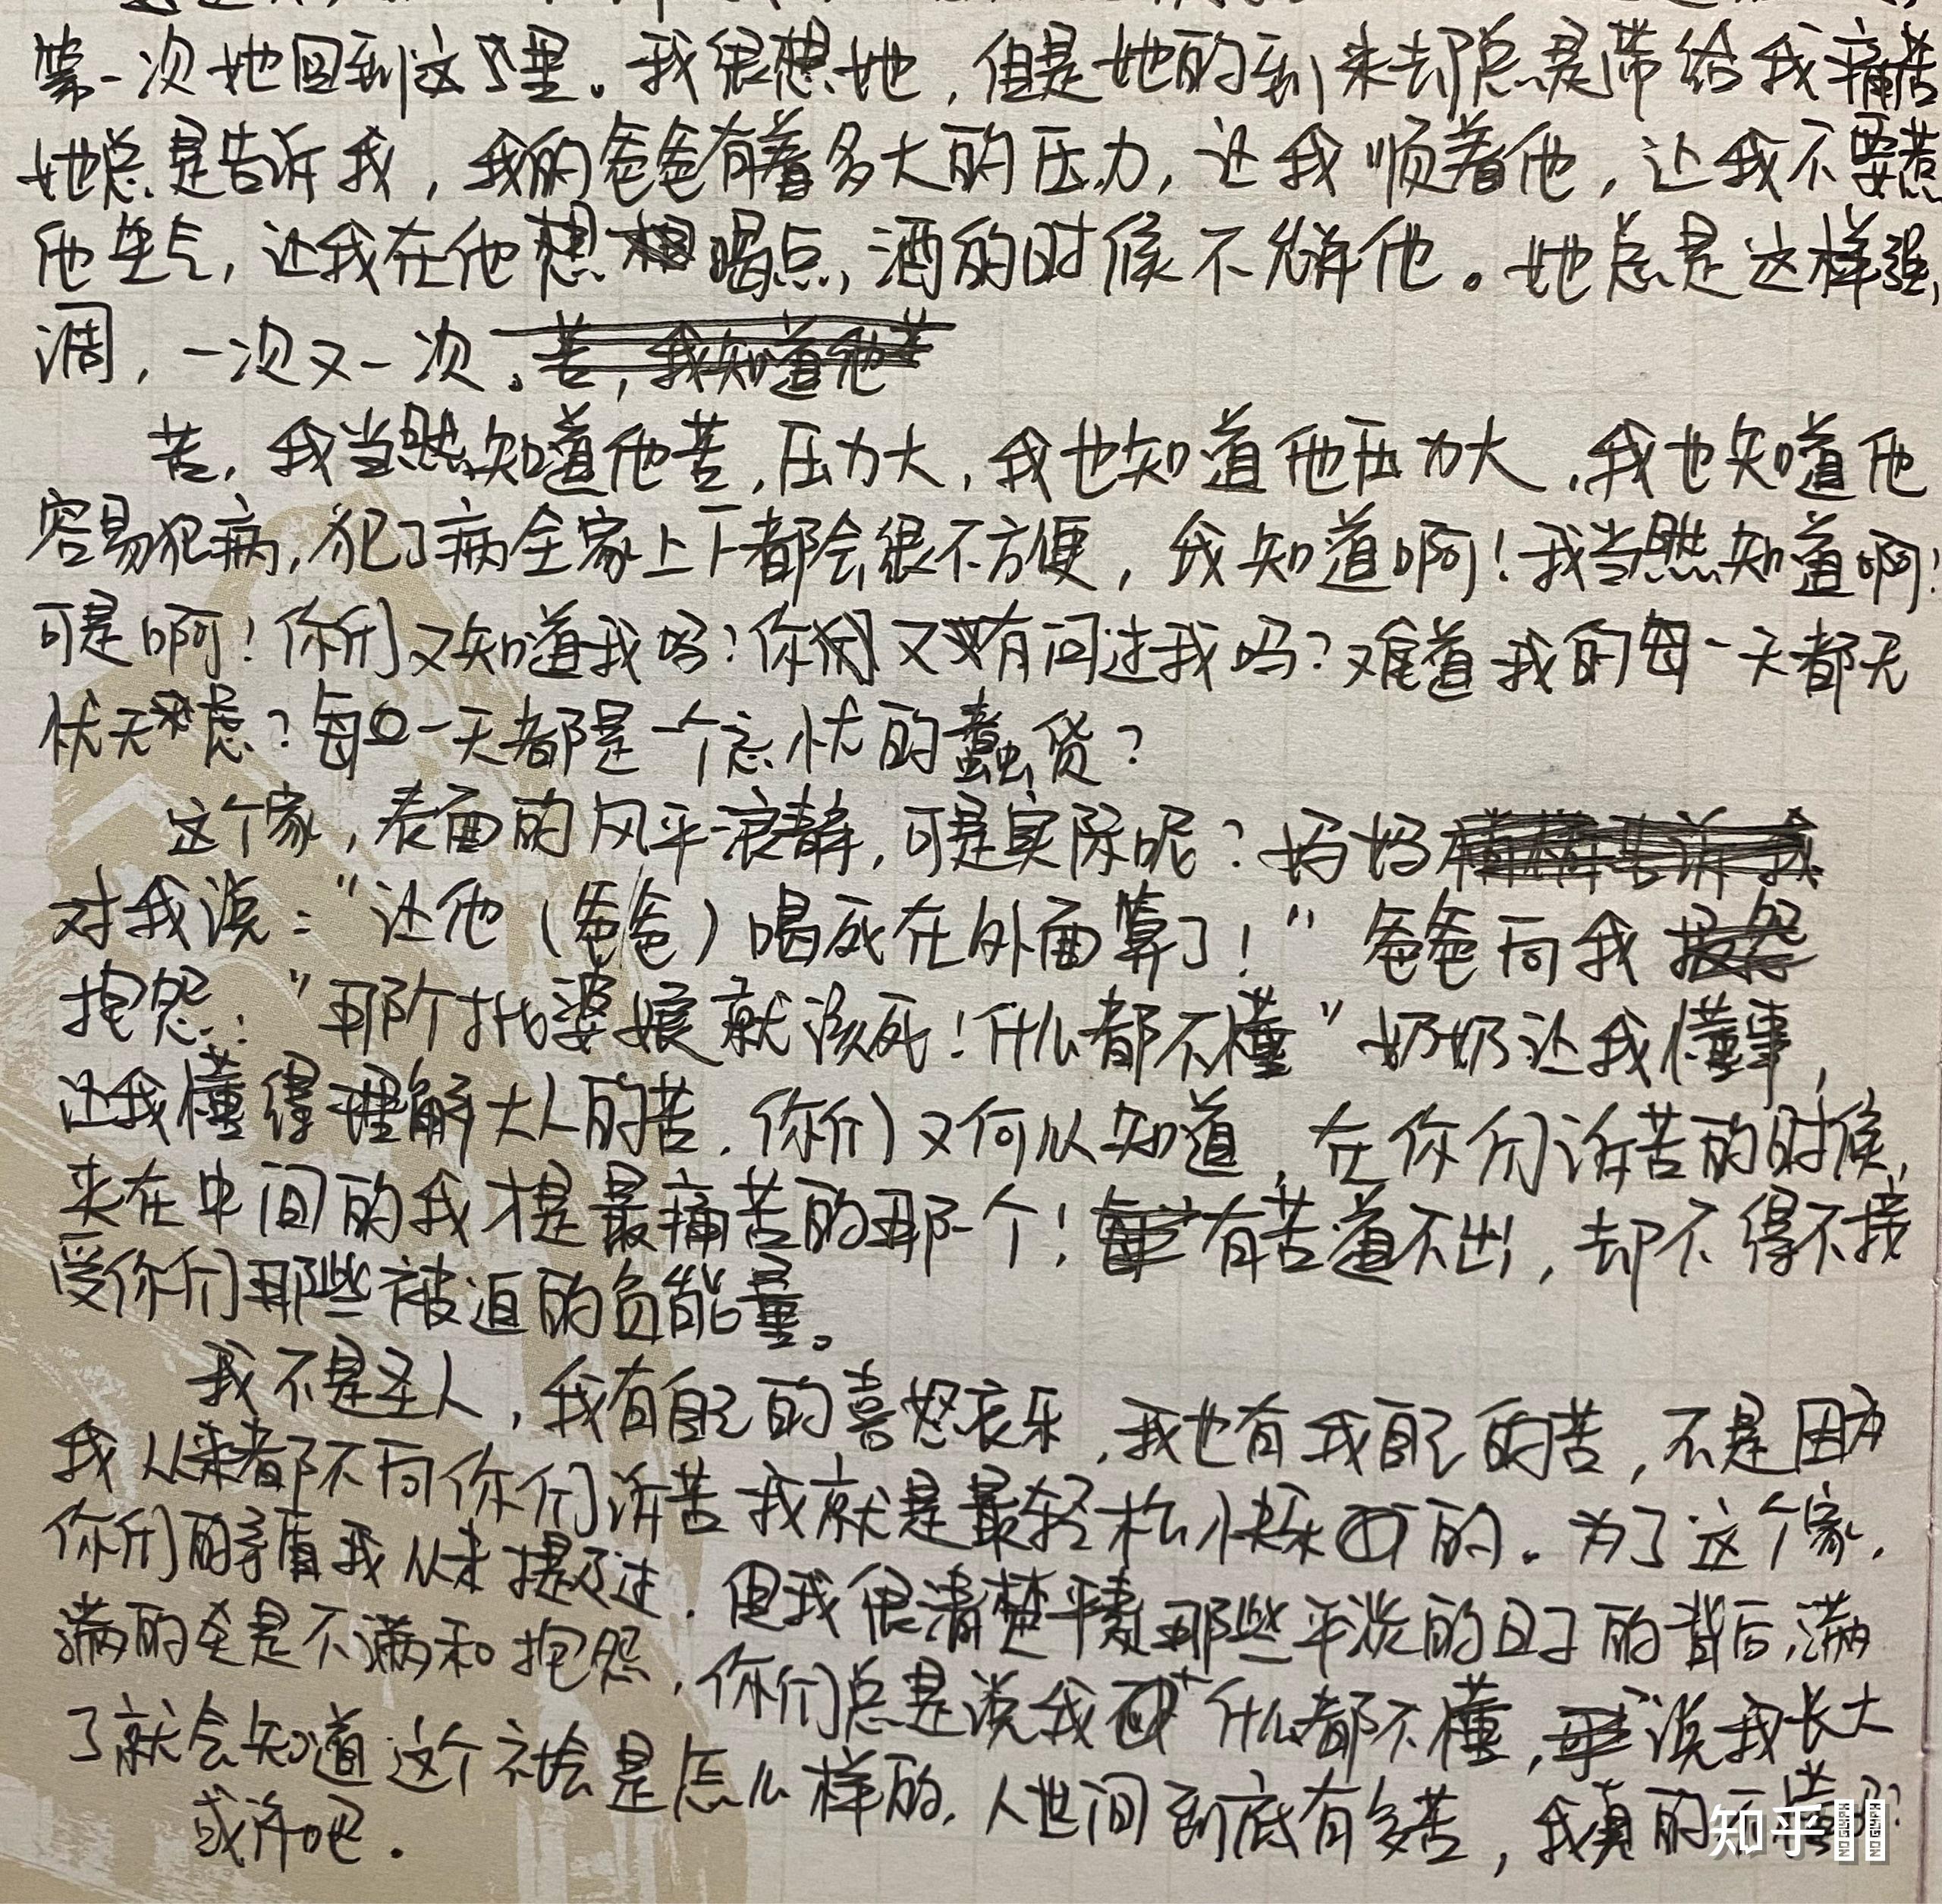 第一次她回到这里。我很想她，但是她的到来却总是带给我痛苦
她总是告诉我，我的爸爸有着多大的压力，让我顺着他，让我不要惹
他生气，让我在他想喝点酒的时候不允许他。她总是这样强
调，一次又一次。苦，我知道他苦
苦，我当然知道他苦，压力大，我也知道他压力大，我也知道他
容易犯病，犯了病全家上下都会很不方便，我知道啊！我当然知道啊！
可是啊！你们又知道我吗？你们又有问过我吗？难道我的每一天都无
忧无虑？每一天都是一个忘忧的蠢货？
这个家，表面的风平浪静，可是实际呢？妈妈
对我说：“让他（爸爸）喝死在外面算了！”爸爸向我
抱怨：“那个批婆娘就该死！什么都不懂”奶奶让我懂事，
让我懂得理解大人的苦，你们又何从知道，在你们诉苦的时候，
夹在中间的我才是最痛苦的那一个！有苦道不出，却不得不接
受你们那些被迫的负能量。
我不是圣人，我有自己的喜怒哀乐，我也有我自己的苦，不是因为
我从来都不向你们诉苦我就是最轻松快乐的。为了这个家，
你们的矛盾我从未提及过，但我很清楚那些平淡的日子的背后，满
满的全是不满和抱怨，你们总是说我什么都不懂，说我长大
了就会知道这个社会是怎么样的，人世间到底有多苦，我真的不懂吗？
或许吧．
知乎